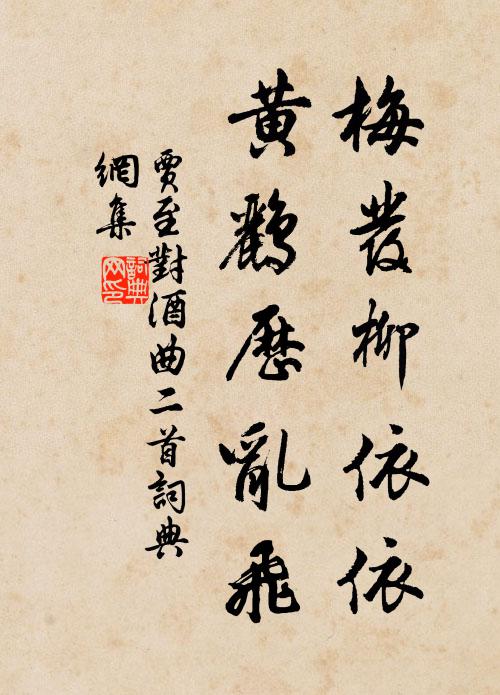 梅發柳依依
黃鸝歷亂飛
賈至對酒曲二首詞典
網集
詞典
网印